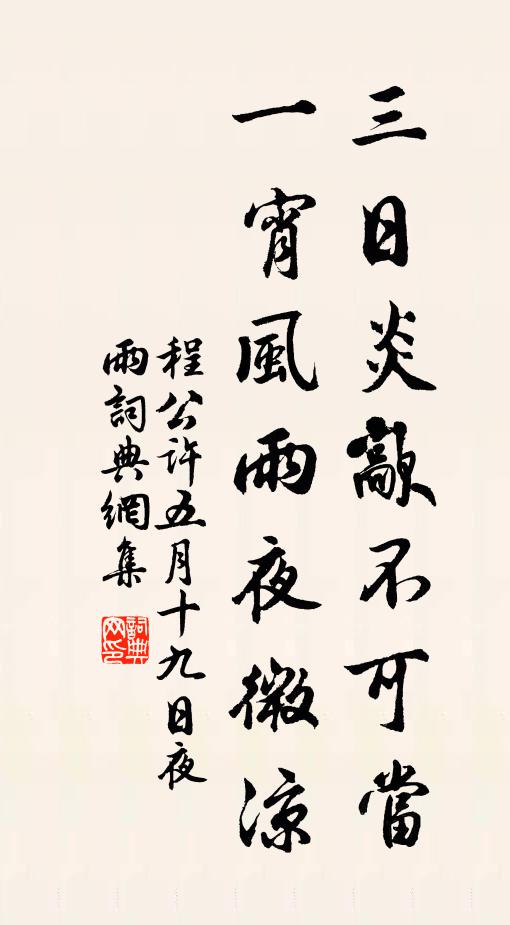 三日炎歊不可當
一宵風雨夜微涼
程公許五月十九日夜
雨詞典網集
詞典
网印